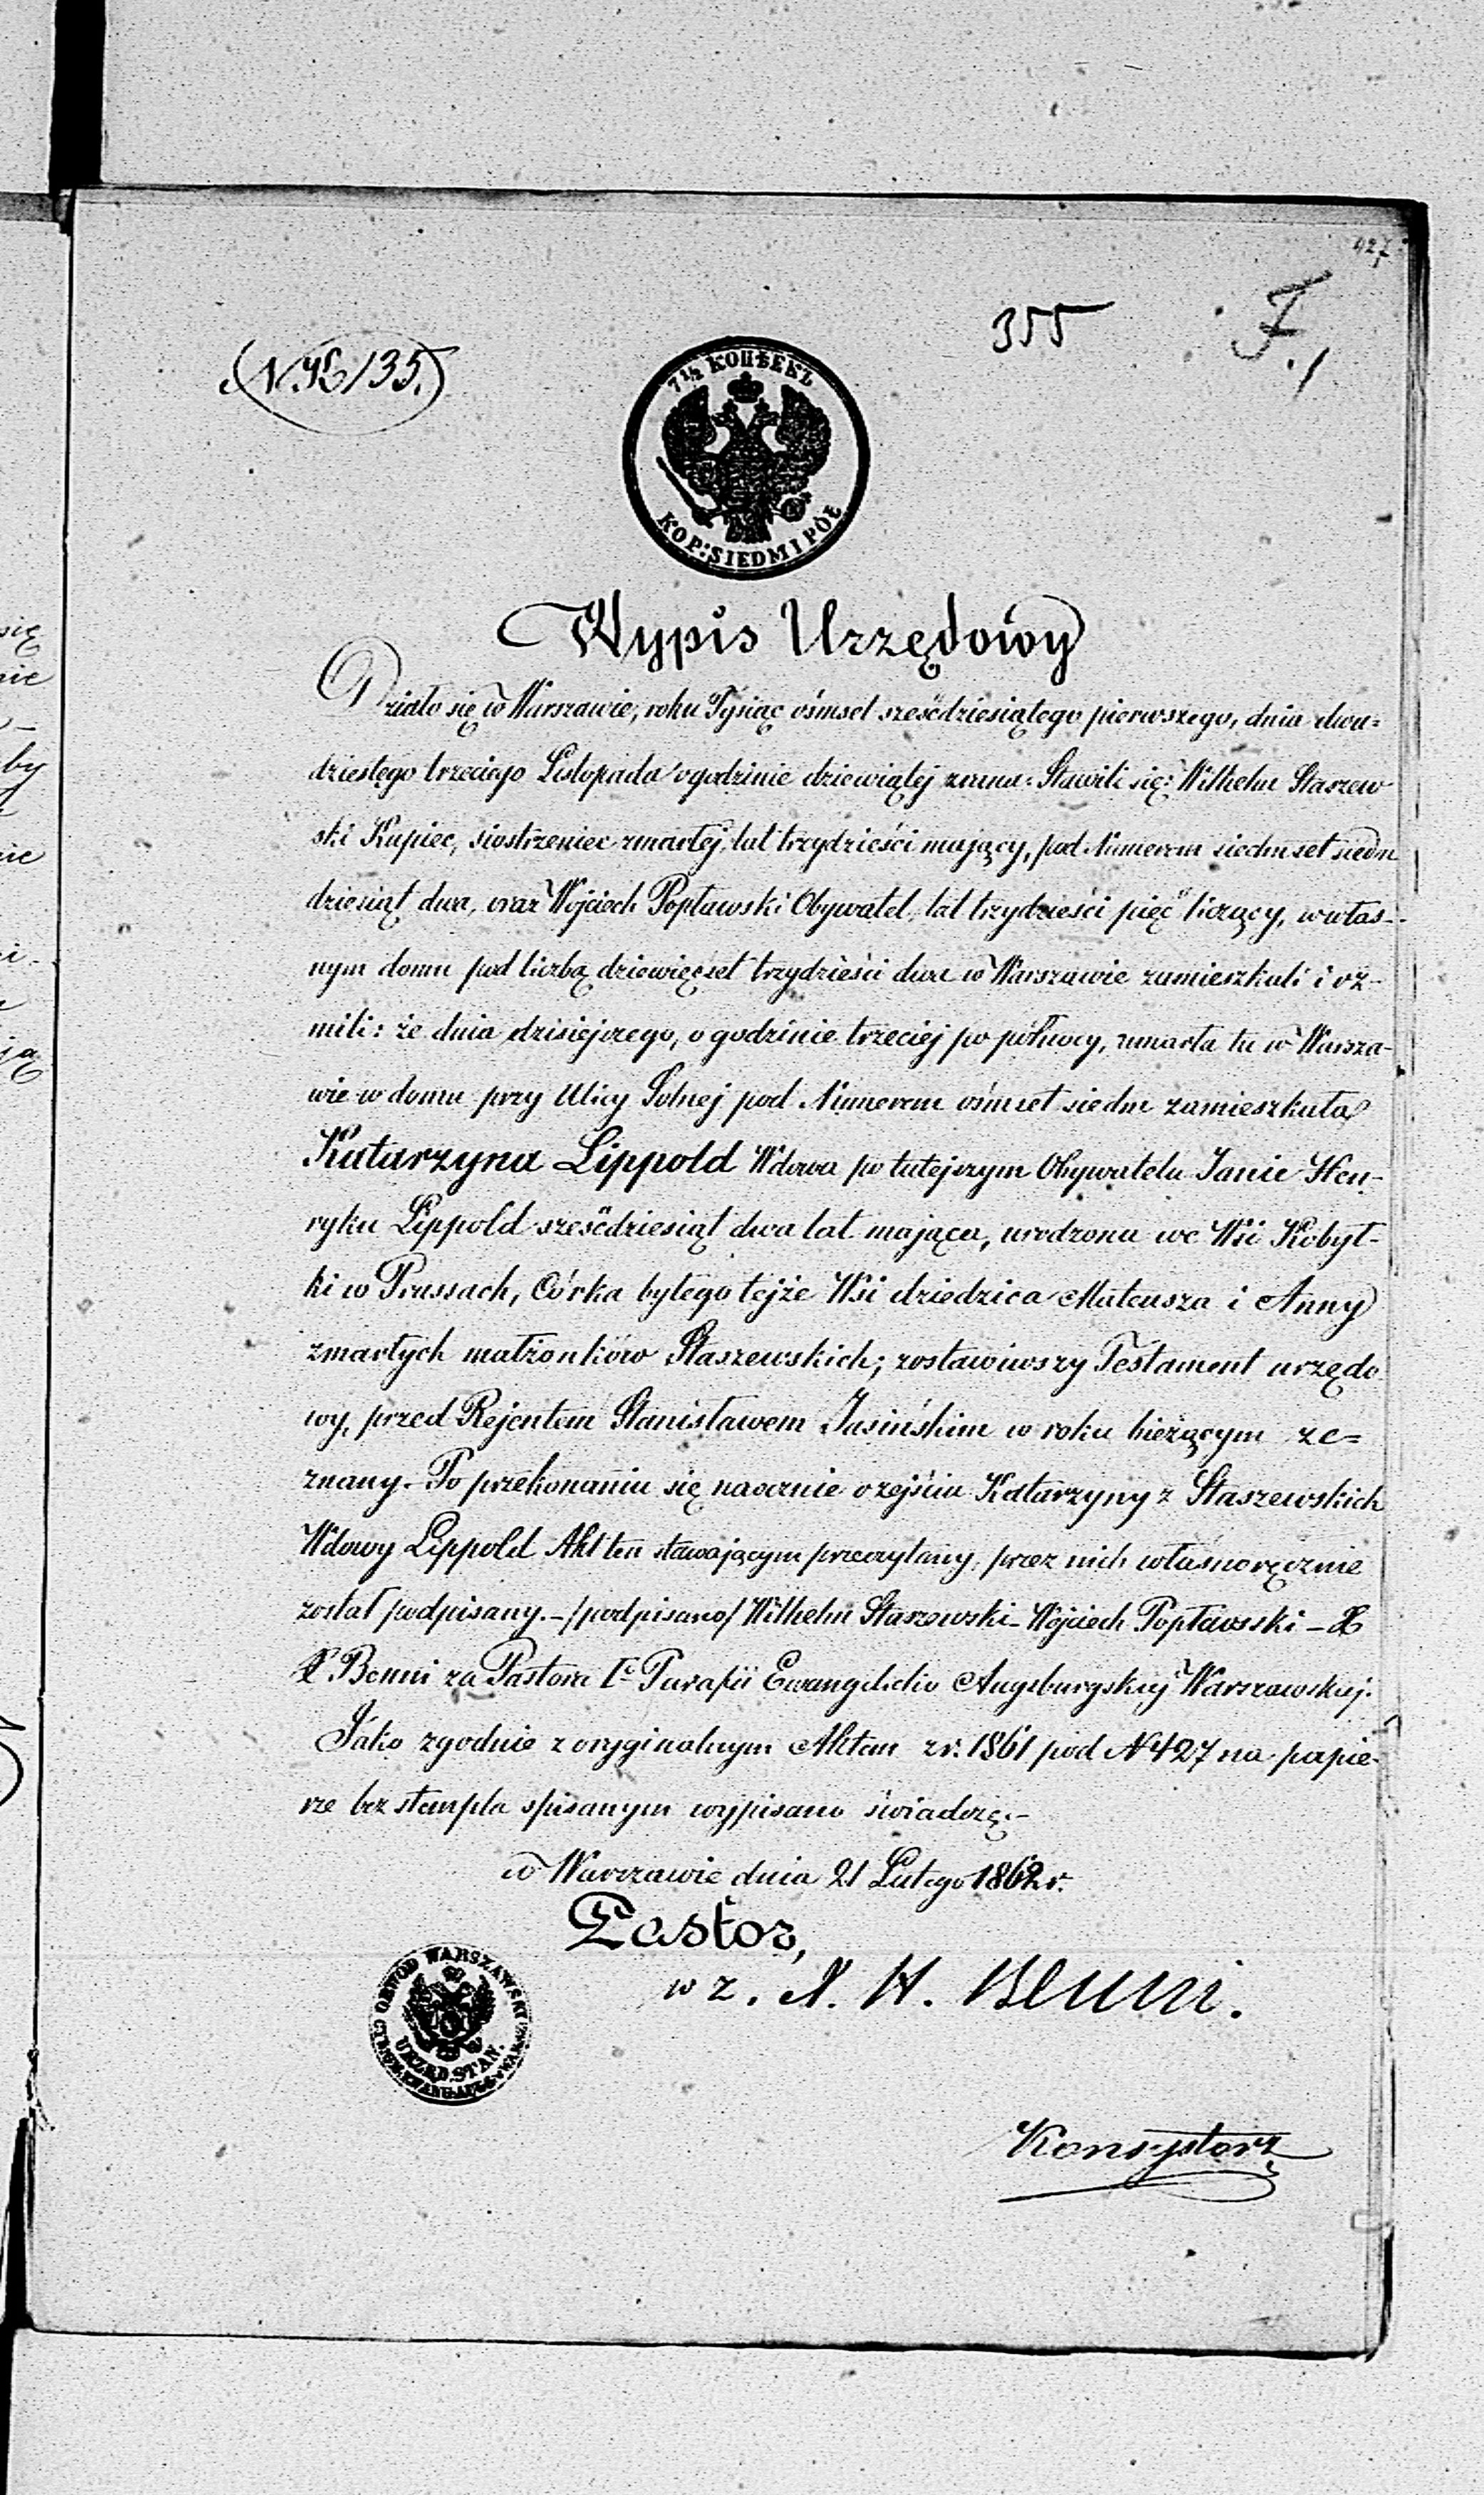 427
355
F.
7½ КОПѢЕКЪ
KOP: SIEDM I PÓŁ
Wypis Urzędowy
Działo się w Warszawie, roku Tysiąc ośmset sześćdziesiątego pierwszego, dnia dwu=
dziestego trzeciego Listopada o godzinie dziewiątej zrana. Stawili się: Wilhelm Staszew
ski Kupiec, siostrzeniec zmarłej, lat trzydzieści mający, pod Numerem siedmset siedm
dziesiąt dwa, oraz Wojciech Popławski Obywatel, lat trzydzieści pięć liczący, w włas-
nym domu pod liczbą dziewięćset trzydzieści dwa w Warszawie zamieszkali i oz-
mili: że dnia dzisiejszego, o godzinie trzeciej po północy, zmarła tu w Warsza-
wie w domu przy Ulicy Solnej pod Numerem ośmset siedm zamieszkała
Katarzyna Lippold Wdowa po tutejszym Obywatelu Janie Hen-
ryku Lippold sześćdziesiąt dwa lat mająca, urodzona we Wsi Kobył-
ki w Prussach, Córka byłego tejże Wsi dziedzica Mateusza i Anny
zmarłych małżonków Staszewskich; zostawiwszy Testament urzędo
wy, przed Rejentem Stanisławem Jasińskim w roku bieżącym ze=
znany. Po przekonaniu się naocznie o zejściu Katarzyny z Staszewskich
Wdowy Lippold Akt ten stawającym przeczytany, przez nich własnoręcznie
został podpisany. – /podpisano/ Wilhelm Staszewski – Wojciech Popławski – X
Benni za Pastora Parafii Ewangelicko Augsburgskiej Warszawskiej.
Jako zgodnie z oryginalnym Aktem z r. 1861 pod N 427 na papie-
rze bez stempla spisanym wypisano świadczę. –
w Warszawie dnia 21 Lutego 1862 r.
Pastor,
w z. X. H. Benni.
OBWÓD WARSZAWSKI
URZĘD. STAN.
Konsystorz
się
nie
by
nie
ją